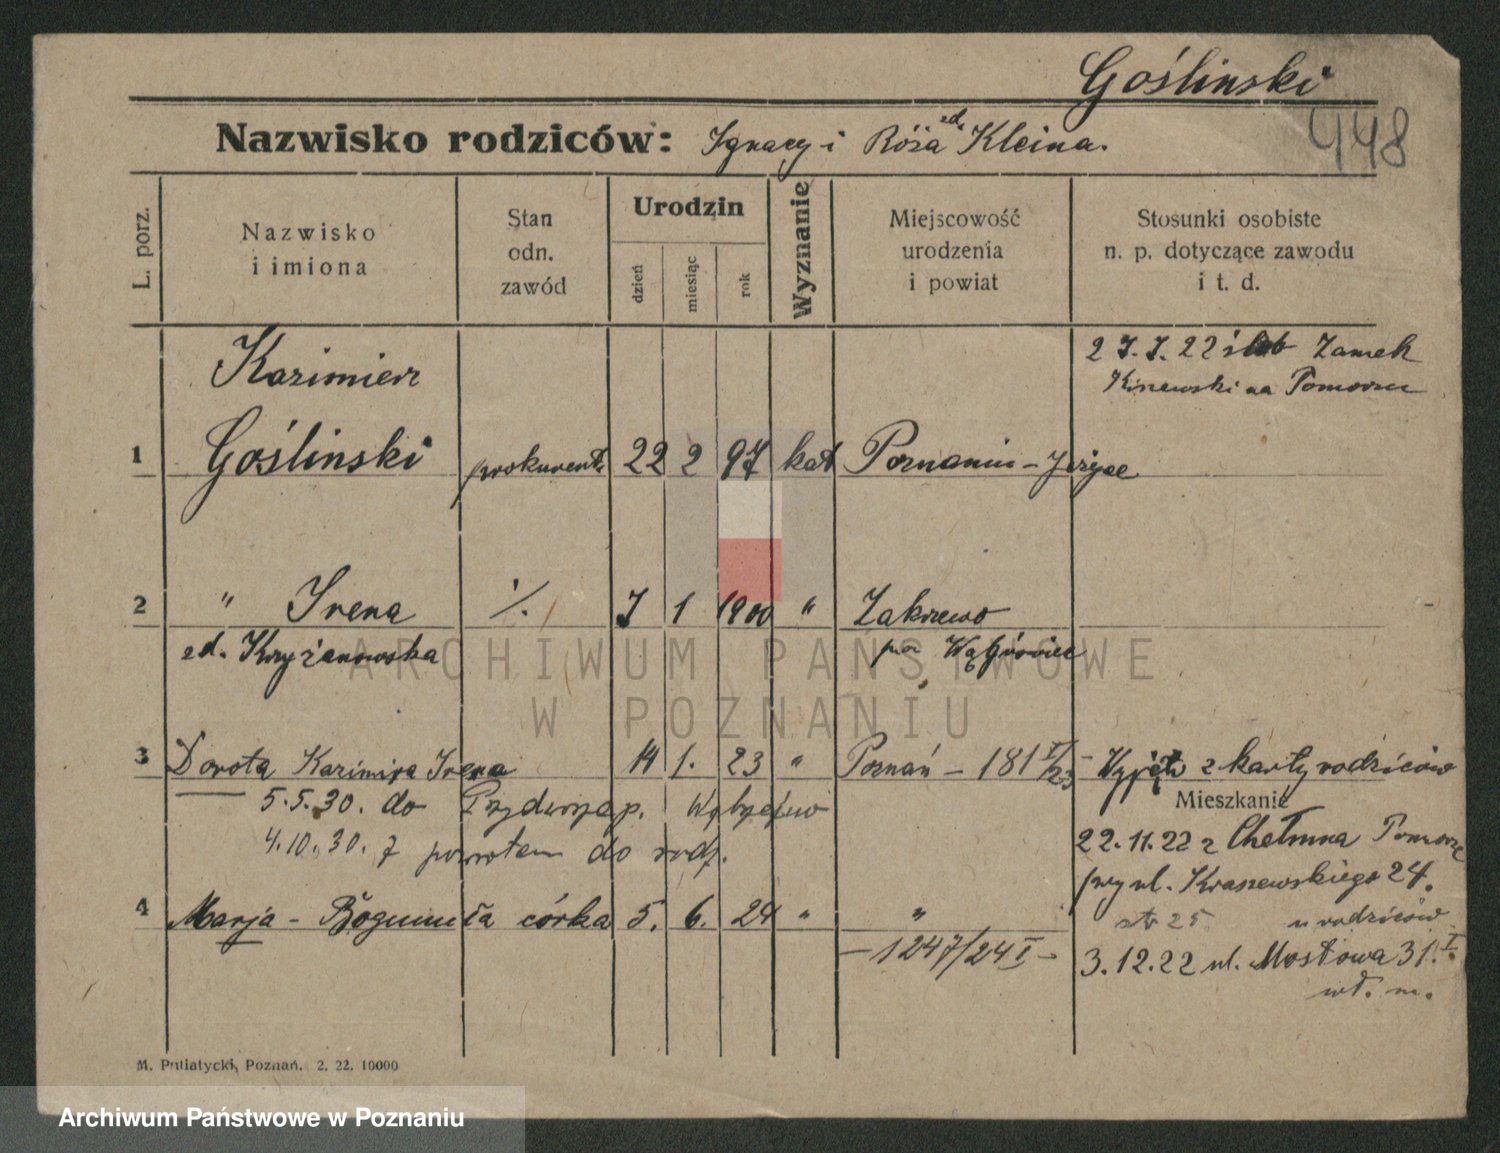 Gośliński
Nazwisko rodziców: Ignacy i Róża zd. Kleina.
448
L. porz.
Nazwisko i imiona
Stan odn. zawód
Urodzin
dzień miesiąc rok
Wyznanie
Miejscowość urodzenia i powiat
Stosunki osobiste n. p. dotyczące zawodu i t. d.
Kazimierz
27.7.22 ślub Zamek
Kiszewski na Pomorzu
1 Gośliński prokurent. 22 2 97 kat Poznaniu - Jeżyce
2 " Irena ./. 7 1 1900 " Zakrzewo
zd. Krzyżanowska
3 Dorota Kazimira Irena 14 1. 23 " Poznań - 181 I/23 - z karty rodziców
5.5.30. do p.
Mieszkanie
22.11.22 z Chełmna Pomorze
4.10.30. z powrotem do rodz.
przy ul. Kraszewskiego 24.
4 Marja - Bogumiła córka 5. 6. 24 " "
str 25 u rodziców
- 1247/24 I -
3.12.22 ul. Mostowa 31. I.
wł. m.
M. Putiatycki, Poznań. 2. 22. 10000
ARCHIWUM PAŃSTWOWE
W POZNANIU
Archiwum Państwowe w Poznaniu